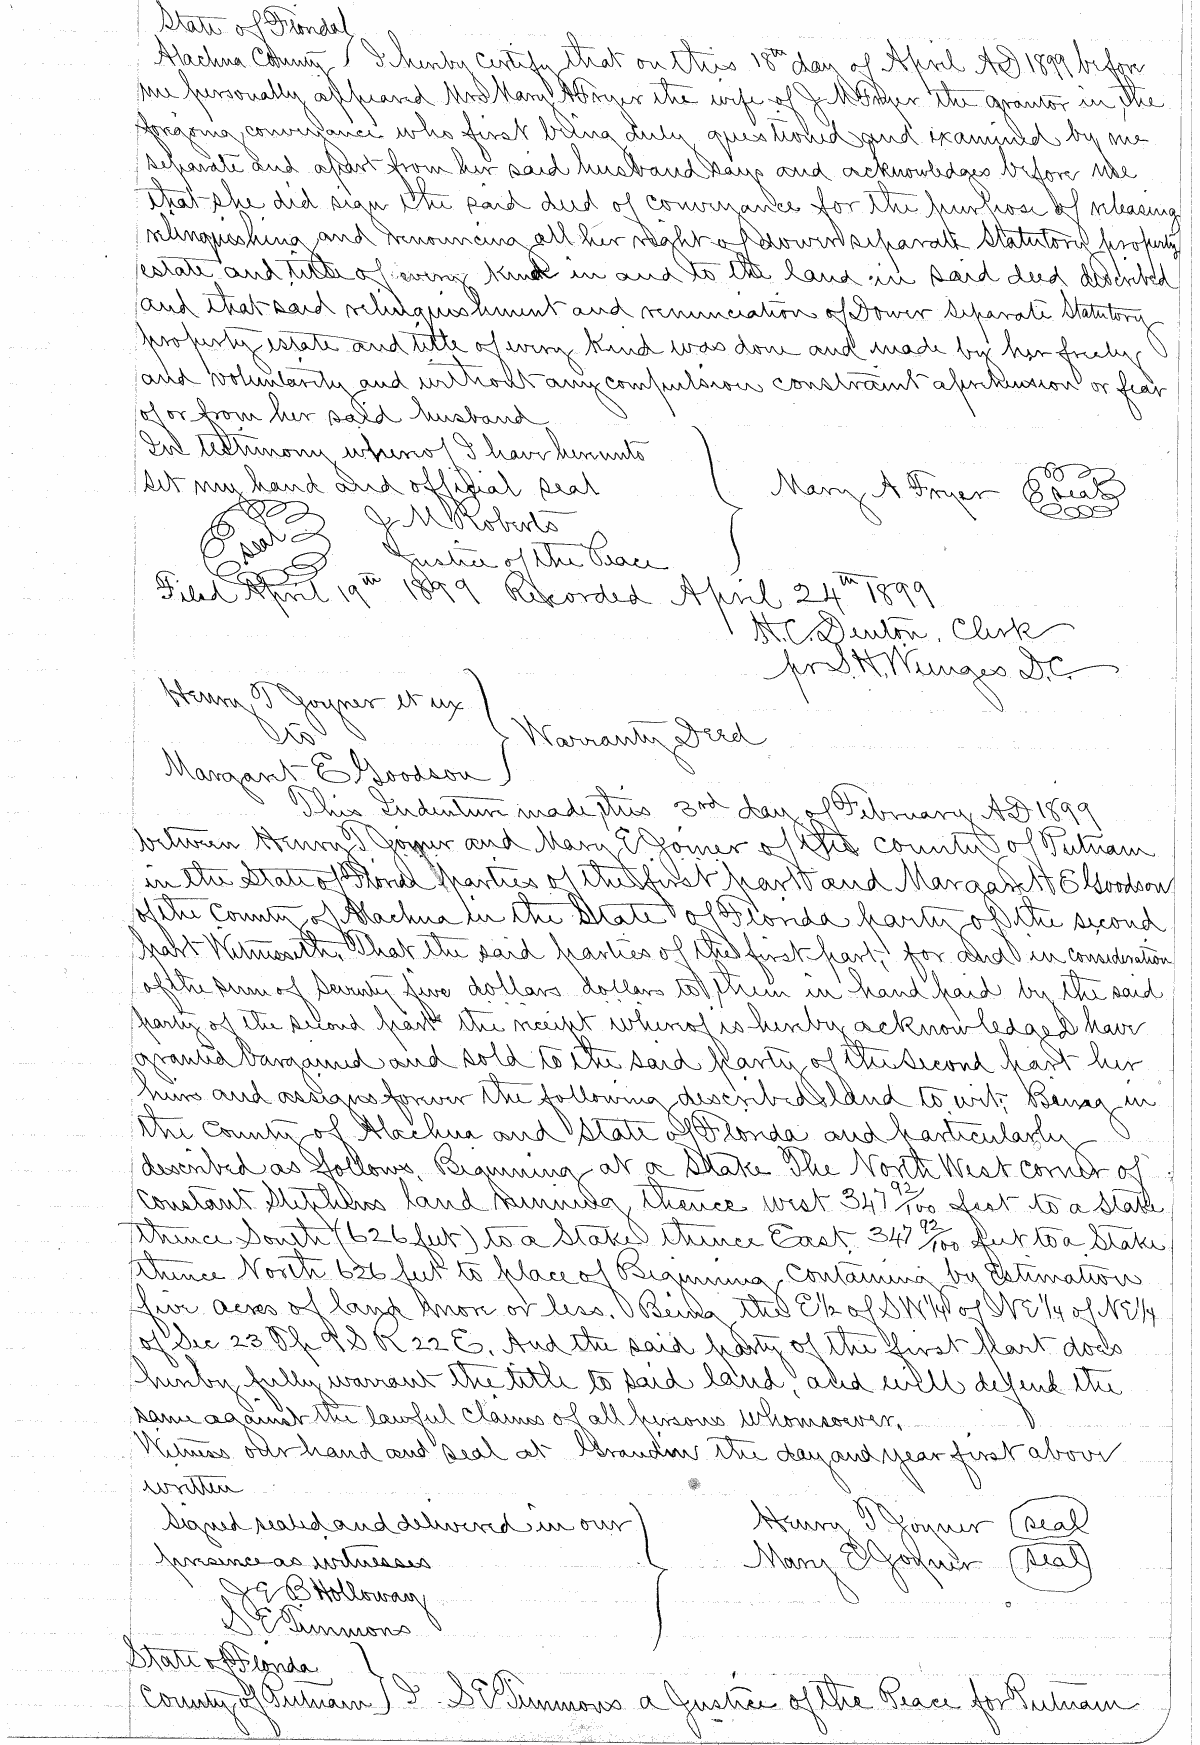 State of Florida
Alachua County I hereby certify that on this 18th day of April AD 1899 before
me personally appeared Mrs Mary A Fryer the wife of J M Fryer the grantor in the
forgoing conveyance who first being duly questioned and examined by me
separate and apart from her said husband says and acknowledges before me
that she did sign the said deed of conveyance for the purpose of releasing
relinquishing and renouncing all her right of dower separate Statutory property
estate and title of every kind in and to the land in said deed described
and that said relinquishment and renunciation of Dower separate Statutory
property estate and title of every kind was done and made by her freely
and voluntarily and without any compulsion constraint aprehension or fear
of or from her said husband
In testimony whereof I have hereunto
set my hand and official seal
Mary A Fryer Seal
Seal J M Roberts
Justice of the Peace
Filed April 19th 1899 Recorded April 24th 1899
H.C. Denton, Clerk
pr S.H. Wienges D.C.
Henry T Joyner et ux
to
Warranty Deed
Margaret E Goodson
This Indenture made this 3rd day of February AD 1899
between Henry T Joyner and Mary E Joiner of the county of Putnam
in the State of Florida parties of the first part and Margaret E Goodson
of the County of Alachua in the State of Florida party of the second
part Witnesseth, That the said parties of the first part, for and in consideration
of the sum of Seventy five dollars dollars to them in hand paid by the said
party of the second part the receipt whereof is hereby acknowledged have
granted bargained and sold to the said party of the second part her
heirs and assigns forever the following described land to wit; Being in
the County of Alachua and State of Florida and particularly
described as follows, Beginning at a Stake The North West corner of
Constant Stephens land running thence west 347 92/100 feet to a Stake
thence South (626 feet) to a Stake thence East 347 92/100 feet to a Stake
thence North 626 feet to place of Beginning, Containing by Estimation
five acres of land more or less. Being the E½ of SW¼ of NE¼ of NE¼
of Sec 23 Tp 9 S R 22 E. And the said party of the first part does
hereby fully warrant the title to said land, and will defend the
same against the lawful claims of all persons whomsoever.
Witness our hand and seal at Grandin the day and year first above
written
Signed sealed and delivered in our
presence as witnesses
Henry T Joyner seal
Mary E Joyner seal
J E B Holloway
S E Timmons
State of Florida
County of Putnam I S E Timmons a Justice of the Peace for Putnam